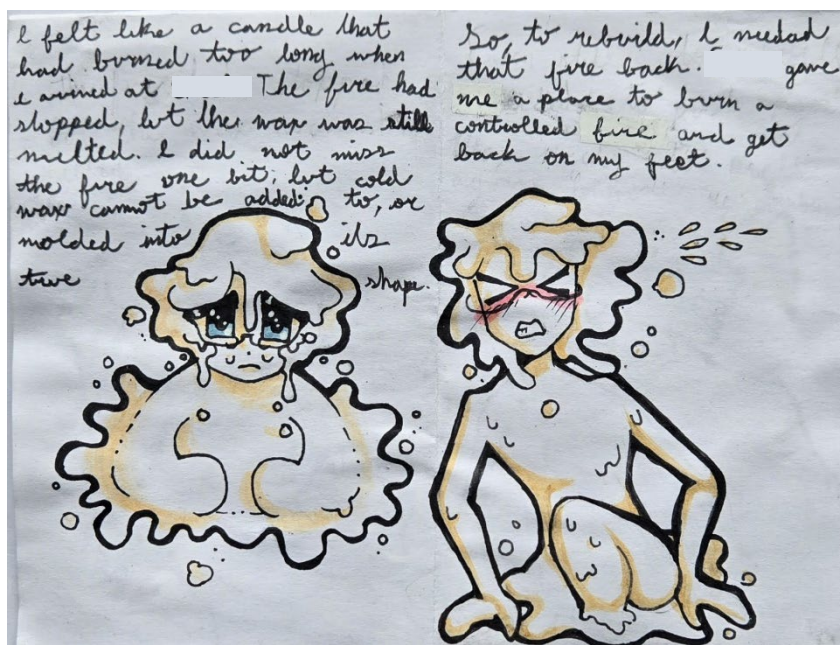 I felt like a candle that
had burned too long when
I arrived at
The fire had
stopped, but the wax was still
melted. I did not miss
the fire one bit, but cold
wax cannot be added to, or
molded into its
true shape.
So, to rebuild, I needed
that fire back. gave
me a place to burn a
controlled fire and get
back on my feet.